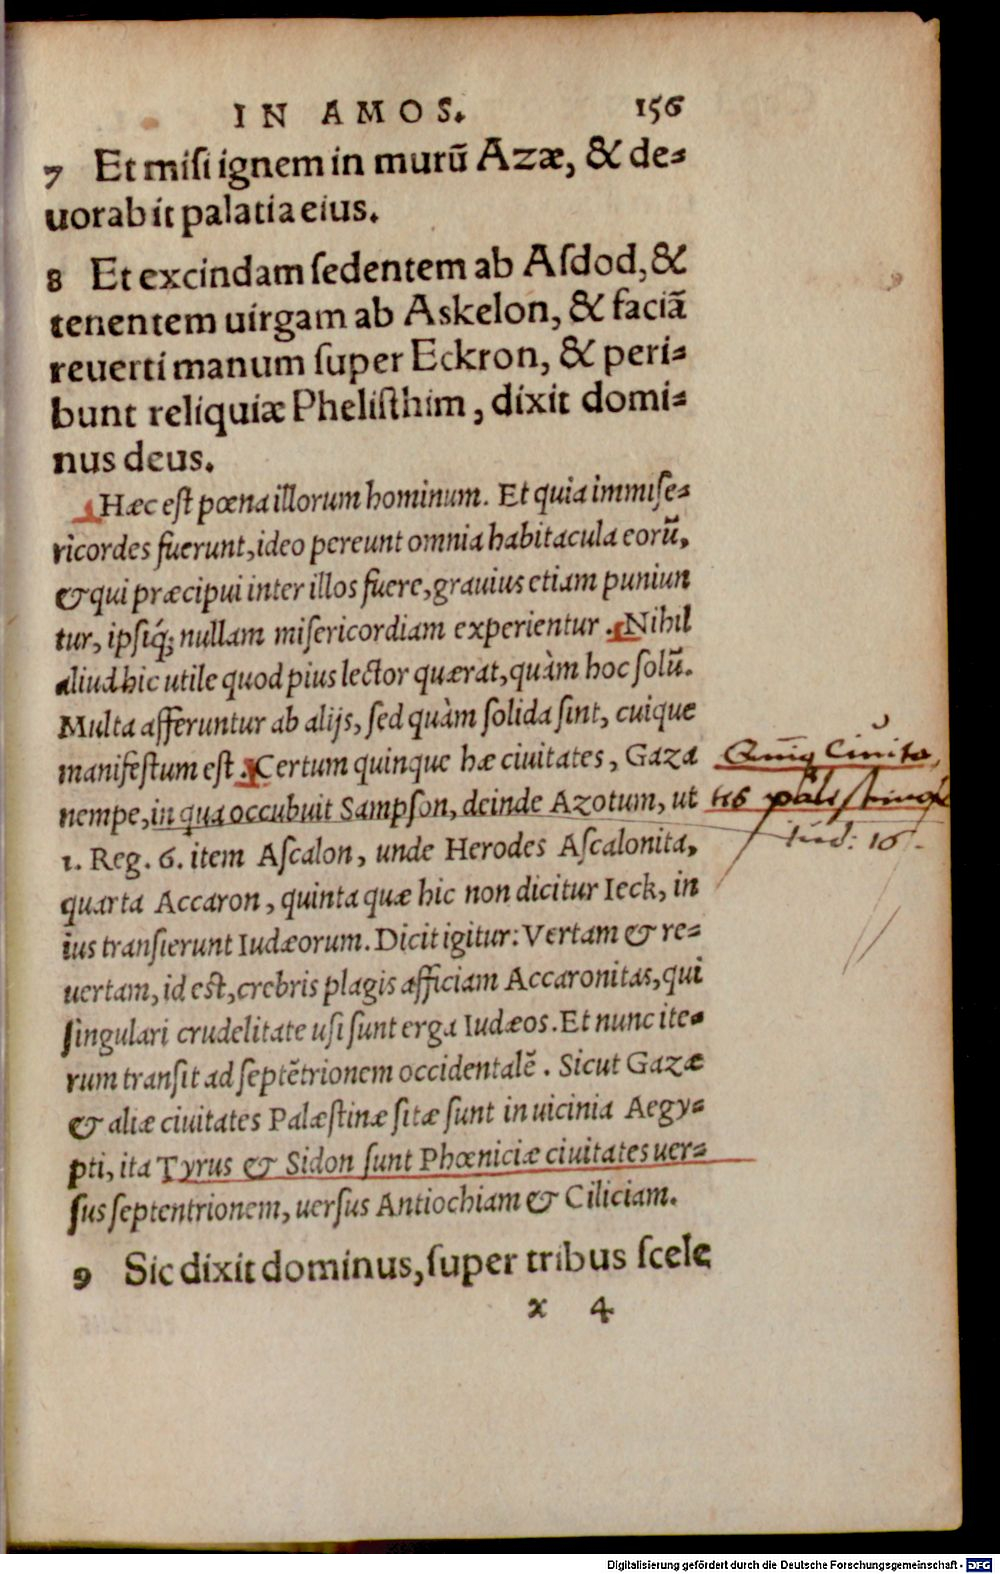 IN AMOS. 156
7 Et misi ignem in murũ Azæ, & de-
uorabit palatia eius.
8 Et excindam sedentem ab Asdod, &
tenentem uirgam ab Askelon, & faciã
reuerti manum super Eckron, & peri-
bunt reliquiæ Phelisthim, dixit domi-
nus deus.
Hæc est pœna illorum hominum. Et quia immise-
ricordes fuerunt, ideo pereunt omnia habitacula eorũ,
& qui præcipui inter illos fuere, grauius etiam puniun
tur, ipsiq́; nullam misericordiam experientur. Nihil
aliud hic utile quod pius lector quærat, quàm hoc solũ.
Multa afferuntur ab alijs, sed quàm solida sint, cuique
manifestum est. Certum quinque hæ ciuitates, Gaza
nempe, in qua occubuit Sampson, deinde Azotum, ut
1. Reg. 6. item Ascalon, unde Herodes Ascalonita,
quarta Accaron, quinta quæ hic non dicitur Ieck, in
ius transierunt Iudæorum. Dicit igitur: Vertam & re-
uertam, id est, crebris plagis afficiam Accaronitas, qui
singulari crudelitate usi sunt erga Iudæos. Et nunc ite-
rum transit ad septẽtrionem occidentalẽ. Sicut Gazæ
& aliæ ciuitates Palæstinæ sitæ sunt in uicinia Aegy-
pti, ita Tyrus & Sidon sunt Phœniciæ ciuitates uer-
sus septentrionem, uersus Antiochiam & Ciliciam.
9 Sic dixit dominus, super tribus scele
x 4
Ciuita
tes
Iud: 16.
Digitalisierung gefördert durch die Deutsche Forschungsgemeinschaft - DFG